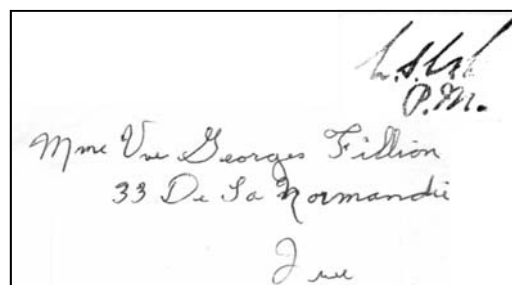 P.M.
Mme Vve Georges Fillion
33 De La Normandie